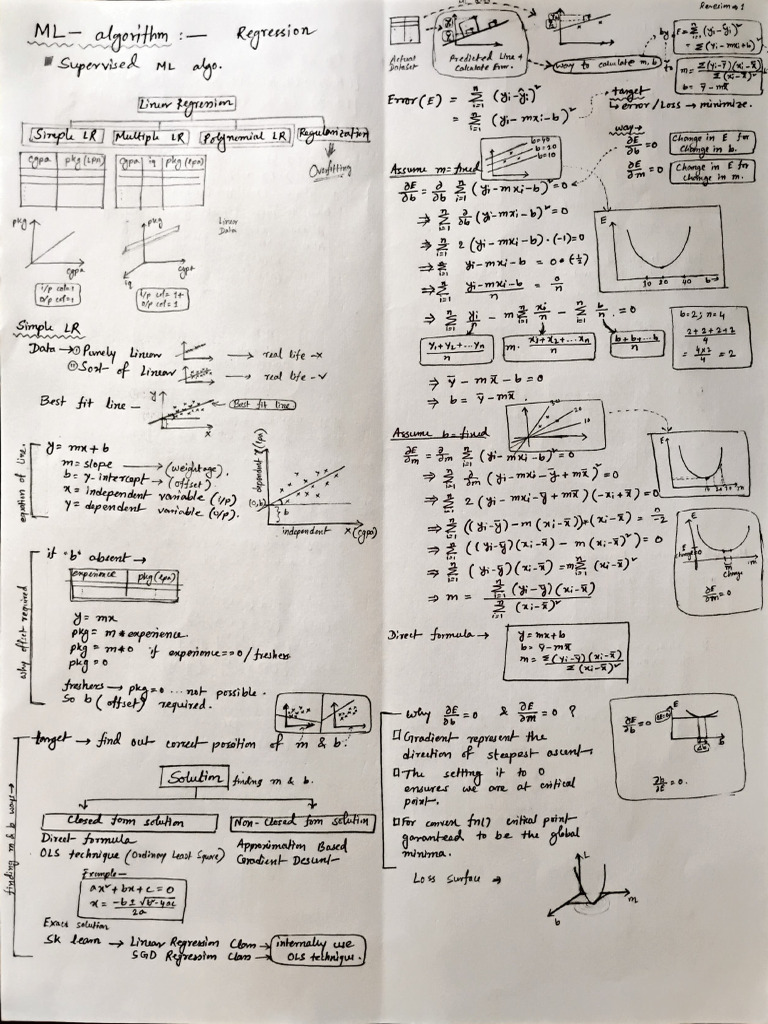 ML - algorithm :- Regression
Supervised ML algo.
Linear Regression
Simple LR
Multiple LR
Polynomial LR
Regularization
Overfitting
cgpa pkg (LPA)
cgpa iq pkg (LPA)
pkg
cgpa
i/p col=1
o/p col=1
pkg
cgpa
iq
Linear
Data
i/p col=1+
o/p col=1
Simple LR
Data → (i) Purely Linear → real life - x
(ii) Sort of Linear → real life - ✓
Best fit line - y x Best fit line
equation of line.
y = mx + b
m = slope → (weightage).
b = y-intercept → (offset)
x = independent variable (i/p)
y = dependent variable (o/p).
dependent Y (lpa)
(0,b)
b
independent X (cgpa)
why offset required
if "b" absent →
experience pkg (lpa)
y = mx
pkg = m * experience
pkg = m*0 if experience==0/freshers
pkg = 0
freshers → pkg=0 ... not possible.
So b (offset) required.
target → find out correct position of m & b.
Solution finding m & b.
Closed form solution
Non-Closed form solution
Direct formula
OLS technique (Ordinary Least Square)
Approximation Based
Gradient Descent
Example-
ax² + bx + c = 0
x = -b ± √b²-4ac / 2a
Exact solution
SK learn → Linear Regression Class →
SGD Regression Class →
internally use
OLS technique.
Actual
Dataset
Predicted Line +
Calculate Error.
way to calculate m, b
by
E = Σ (yi - ŷi)²
= Σ (yi - mxi + b)²
m = Σ(yi-ȳ)(xi-x̄) / Σ(xi-x̄)²
b = ȳ - mx̄
Error (E) = Σ (yi - ŷi)²
= Σ (yi - mxi - b)²
target
↳ error/Loss → minimize.
way →
∂E/∂b = 0 Change in E for
change in b.
∂E/∂m = 0 Change in E for
change in m.
Assume m = fixed
b=40
b=20
b=10
∂E/∂b = ∂/∂b Σ (yi - mxi - b)² = 0
⇒ Σ ∂/∂b (yi - mxi - b)² = 0
⇒ Σ 2 (yi - mxi - b) · (-1) = 0
⇒ Σ yi - mxi - b = 0 * (-1/2)
⇒ Σ yi - mxi - b / n = 0/n
⇒ Σ yi/n - m Σ xi/n - Σ b/n = 0
y1+y2+...yn / n
m · x1+x2+...xn / n
b+b+...b / n
E
10 20 40 b→
b=2; n=4
2+2+2+2 / 4
= 4×2 / 4 = 2
⇒ ȳ - mx̄ - b = 0
⇒ b = ȳ - mx̄.
Assume b = fixed
20
10
∂E/∂m = Σ ∂/∂m (yi - mxi - b)² = 0
⇒ Σ ∂/∂m (yi - mxi - ȳ + mx̄)² = 0
⇒ Σ 2 (yi - mxi - ȳ + mx̄) (-xi + x̄) = 0
⇒ Σ ((yi-ȳ) - m(xi-x̄)) * (xi-x̄) = 0/-2
⇒ Σ ((yi-ȳ)(xi-x̄) - m(xi-x̄)²) = 0
⇒ Σ (yi-ȳ)(xi-x̄) = m Σ (xi-x̄)²
⇒ m = Σ (yi-ȳ)(xi-x̄) / Σ (xi-x̄)²
E
change=0
m
change
∂E/∂m = 0
Direct formula →
y = mx + b
b = ȳ - mx̄
m = Σ(yi-ȳ)(xi-x̄) / Σ(xi-x̄)²
why ∂E/∂b = 0 & ∂E/∂m = 0 ?
Gradient represent the
direction of steepest ascent.
The setting it to 0
ensures we are at critical
point.
For convex fn() critical point
garanteed to be the global
minima.
∂E/∂b = 0
E
b
Loss surface →
L
m
b